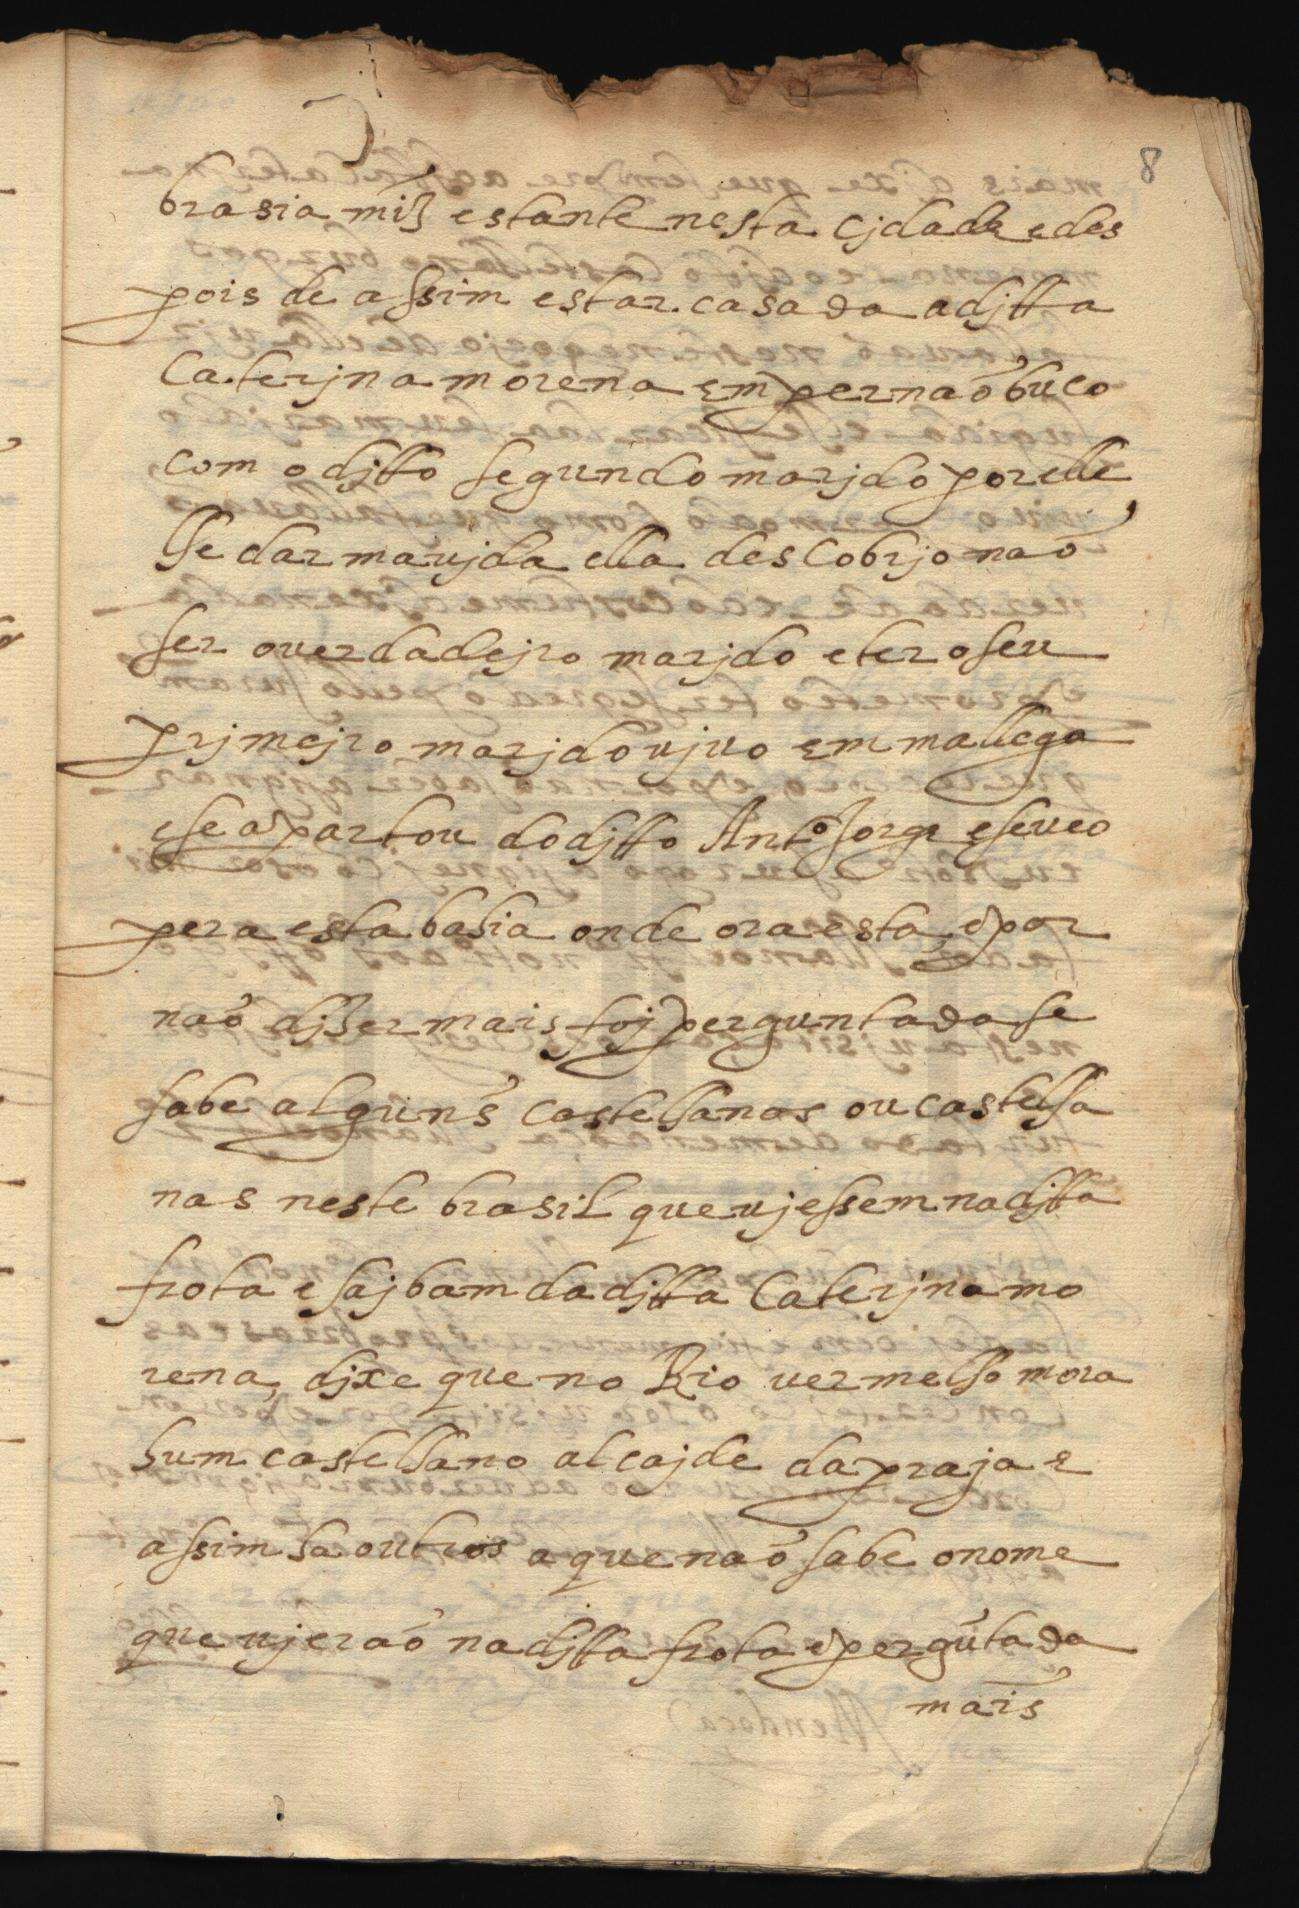 8
brasia miz estante nesta cjdade e des
pois de assim estar casada a djtta
Caterjna morena em pernaõbuco
com o djtto segundo marjdo por elle
lhe dar ma vjda ella descobrjo naõ
ser o verdadejro marjdo e ter o seu
prjmejro marjdo vjuo em mallega
e se apartou do djtto Antº Jorge e se veo
pera esta bahia onde ora esta, e por
naõ djzer mais foj perguntada se
sabe alguns castelhanos ou castelha
nas neste brasil que vjessem na djtta
frota e sajbam da djtta Caterjna mo
rena, djxe que no Rio vermelho mora
hum castelhano alcajde da praja e
assim ha outros a que naõ sabe o nome
que vjeraõ na djtta frota e pergũtada
mais